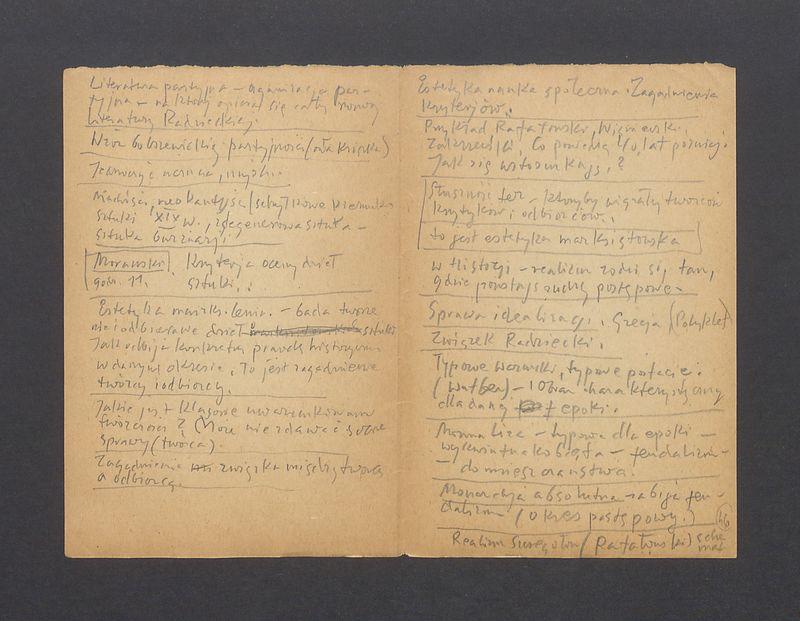 Literatura partyjna – organizacja par-
tyjna – na której opiera się cały rozwój
literatury Radzieckiej.
Wzór bolszewickiej partyjności (cała książka)
nauczcie, myśli.
sztuki XIX w., zdegenerowana sztuka –
sztuka burżuazji.
Morawski kryteria oceny dzieł
godz. 11. sztuki.
Estetyka marks. lenin. – bada tworze
nie i odbieranie dzieł sztuki
Jak odbija konkretną prawdę historyczną
w danym okresie. To jest zagadnienie
twórcy i odbiorcy.
Jakie jest klasowe uwarunkowanie
twórczości? (Może nie zdawać sobie
sprawy (twórca).
Zagadnienie związku między twórcą
a odbiorcą.
Estetyka nauka społeczna. Zagadnienia
kryterjów.
Przykład Rafałowski, Wiśniewski.
Zakrzewski. Co powiedzą 40 lat później.
Jak się ustosunkują?
Słuszność tez – któreby wiązały twórców
krytyków i odbiorców.
to jest estetyka marksistowska
w Historji – realizm rodzi się tam,
gdzie powstają ruchy postępowe.
Sprawa idealizacji. Grecja (Polyklet)
Związek Radziecki.
Typowe warunki, typowe postacie.
– 1 obraz charakterystyczny
dla danej epoki.
Monna Liza – typowa dla epoki –
wykwintna kobieta – feudalizm –
– do mieszczaństwa.
Monarchja absolutna zabija feu-
dalizm (okres postępowy.)
46
Realizm szczegółów (Rafałowski) sche
mat